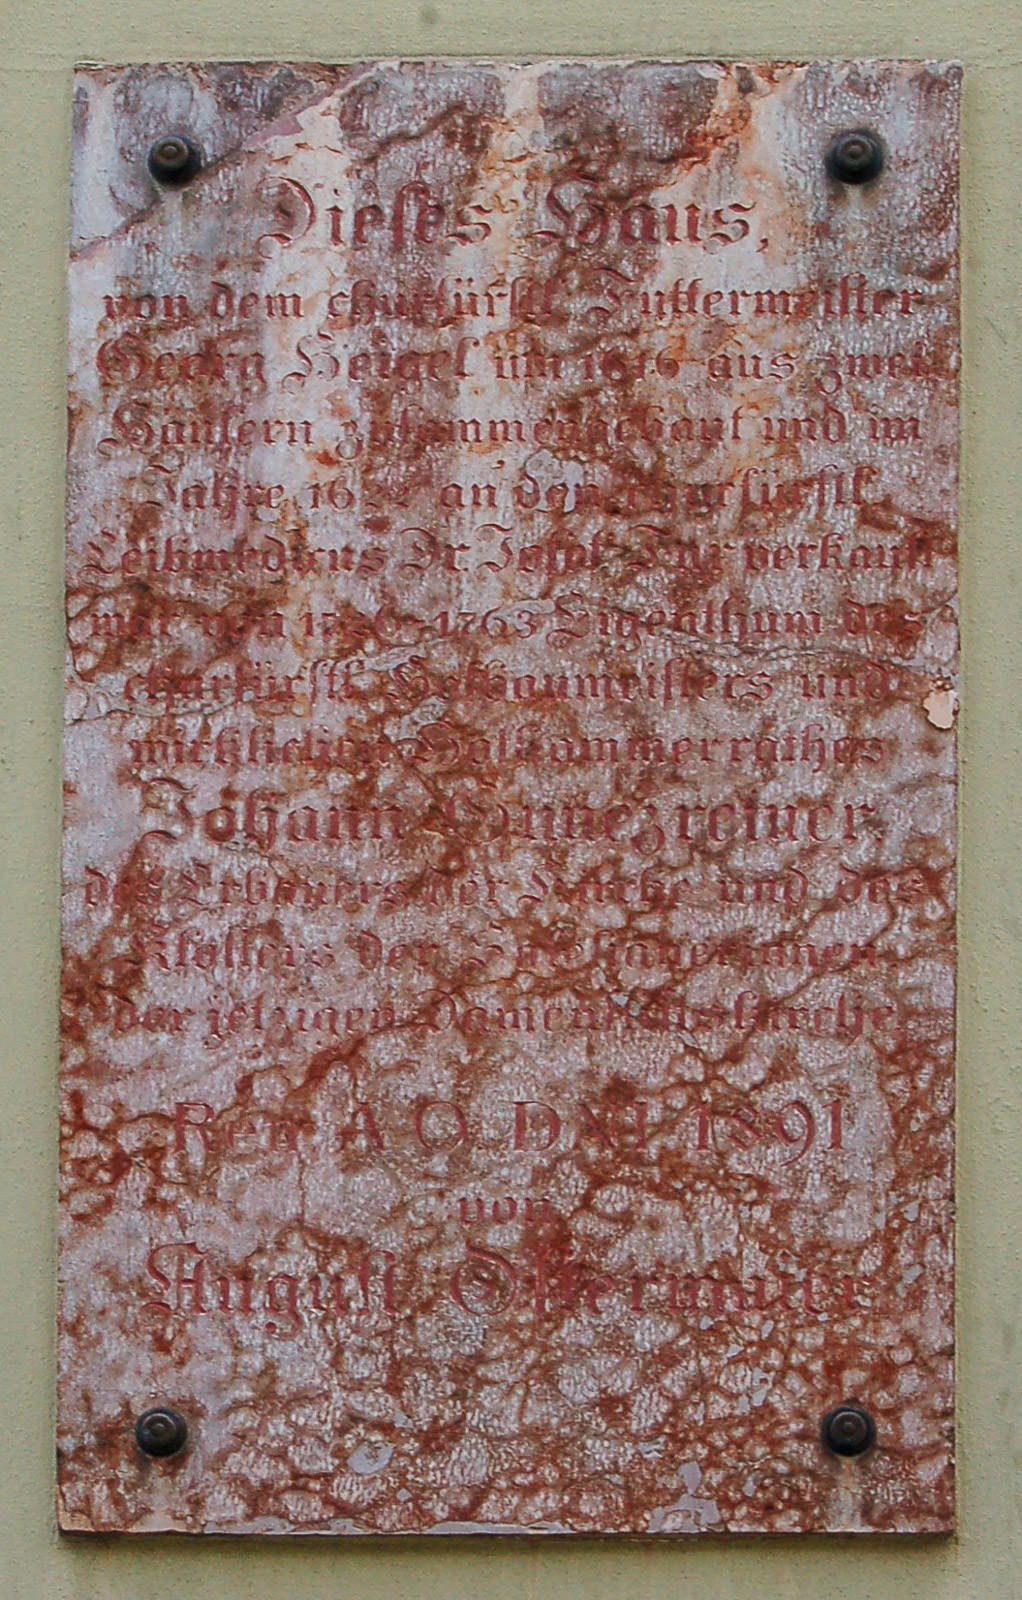 Dieses Haus,
von dem churfürstl. Futtermeister
Georg Heigel um 1616 aus zwei
Häusern zusammengebaut und im
Jahre 16 an den churfürstl.
Leibmedicus Dr. Josef verkauft
war von 1726-1763 Eigenthum des
churfürstl. Hofbaumeisters und
wirklichen Hofkammerrathes
Johann Gunezreiner,
des Erbauers der Kirche und des
Klosters der Salesianerinnen
der jetzigen Damenstiftskirche.
Ren. A O. DNI 1891
von
August Ostermaier